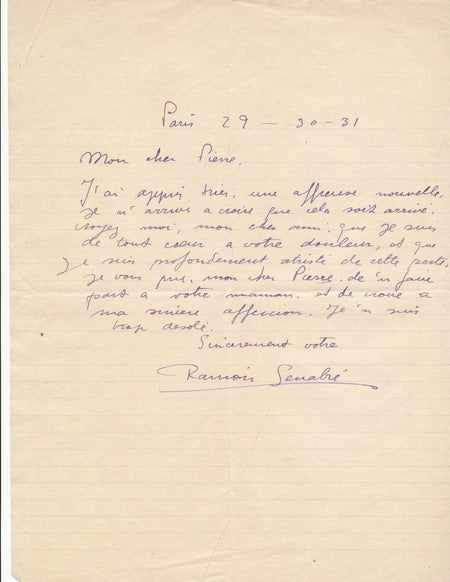 Paris 29 - 30 - 31
Mon cher Pierre.
J'ai appris hier, une affreuse nouvelle,
je n'arrive a croire que cela soit arrivé.
croyez moi, mon cher ami, que je suis
de tout cœur a votre douleur, et que
je suis profondement atristé de cette perte,
je vous prie, mon cher Pierre, de'n faire
part a votre maman. et de croire a
ma sincere affeccion. Je'n suis
trop desolé.
Sincerement votre
Ramon Senabré